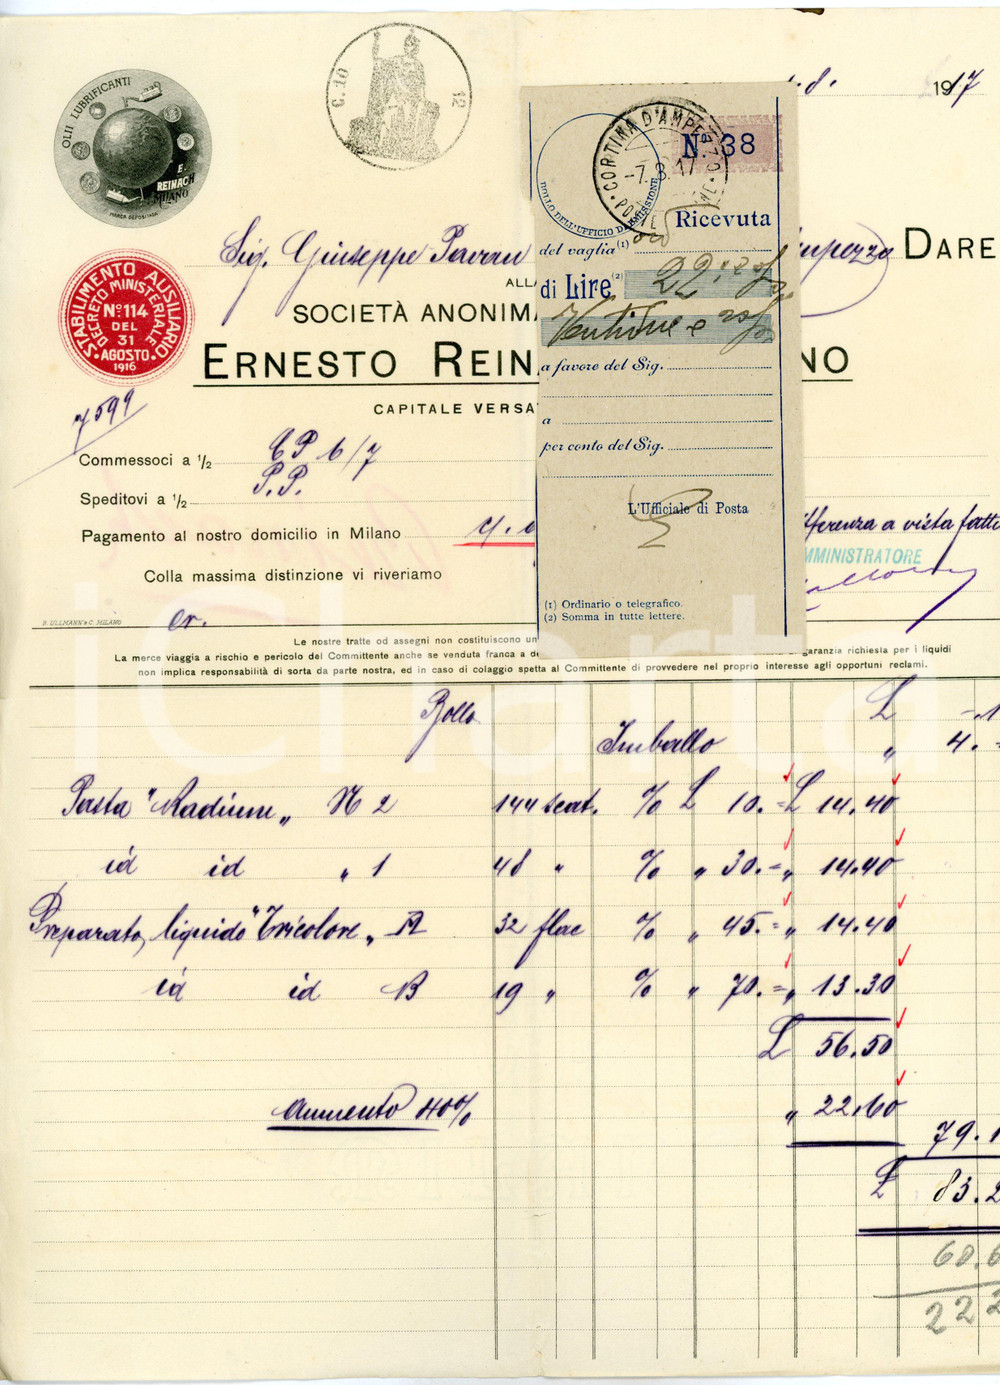 OLII LUBRIFICANTI
E. REINACH
MILANO
MARCA DEPOSITATA
C. 10
12
8. 1917
CORTINA D'AMPEZZO
-7.8.17
POSTE
No 38
BOLLO DELL'UFFICIO DI EMISSIONE
Ricevuta
del vaglia (1) ord
di Lire (2) 22
Ventidue e
a favore del Sig.
a
per conto del Sig.
L'Ufficiale di Posta
(1) Ordinario o telegrafico.
(2) Somma in tutte lettere.
Sig. Giuseppe Pavan
mpezzo DARE
ALLA
SOCIETÀ ANONIMA
ERNESTO REIN
NO
CAPITALE VERSAT
STABILIMENTO AUSILIARIO
DECRETO MINISTERIALE
No. 114
DEL
31
AGOSTO
1916
7599
Commessoci a 1/2 CP 6/7
Speditovi a 1/2 P.P.
Pagamento al nostro domicilio in Milano
fferenza a vista fatt
MMINISTRATORE
Colla massima distinzione vi riveriamo
B. ULLMANN & C. MILANO
er.
Le nostre tratte od assegni non costituiscono un
La merce viaggia a rischio e pericolo del Committente anche se venduta franca a de
garanzia richiesta per i liquidi
non implica responsabilità di sorta da parte nostra, ed in caso di colaggio spetta al Committente di provvedere nel proprio interesse agli opportuni reclami.
iCharta
Bollo £ -.1
Imballo " 4.-
Pasta "Radium" N 2 144 scat. % £ 10.= £ 14.40
id id " 1 48 " % " 30.= " 14.40
Preparato liquido "Tricolore" A 32 flac % " 45.= " 14.40
id id B 19 " % " 70.= " 13.30
£ 56.50
Aumento 40% " 22.60
79.1
£ 83.2
60.6
222